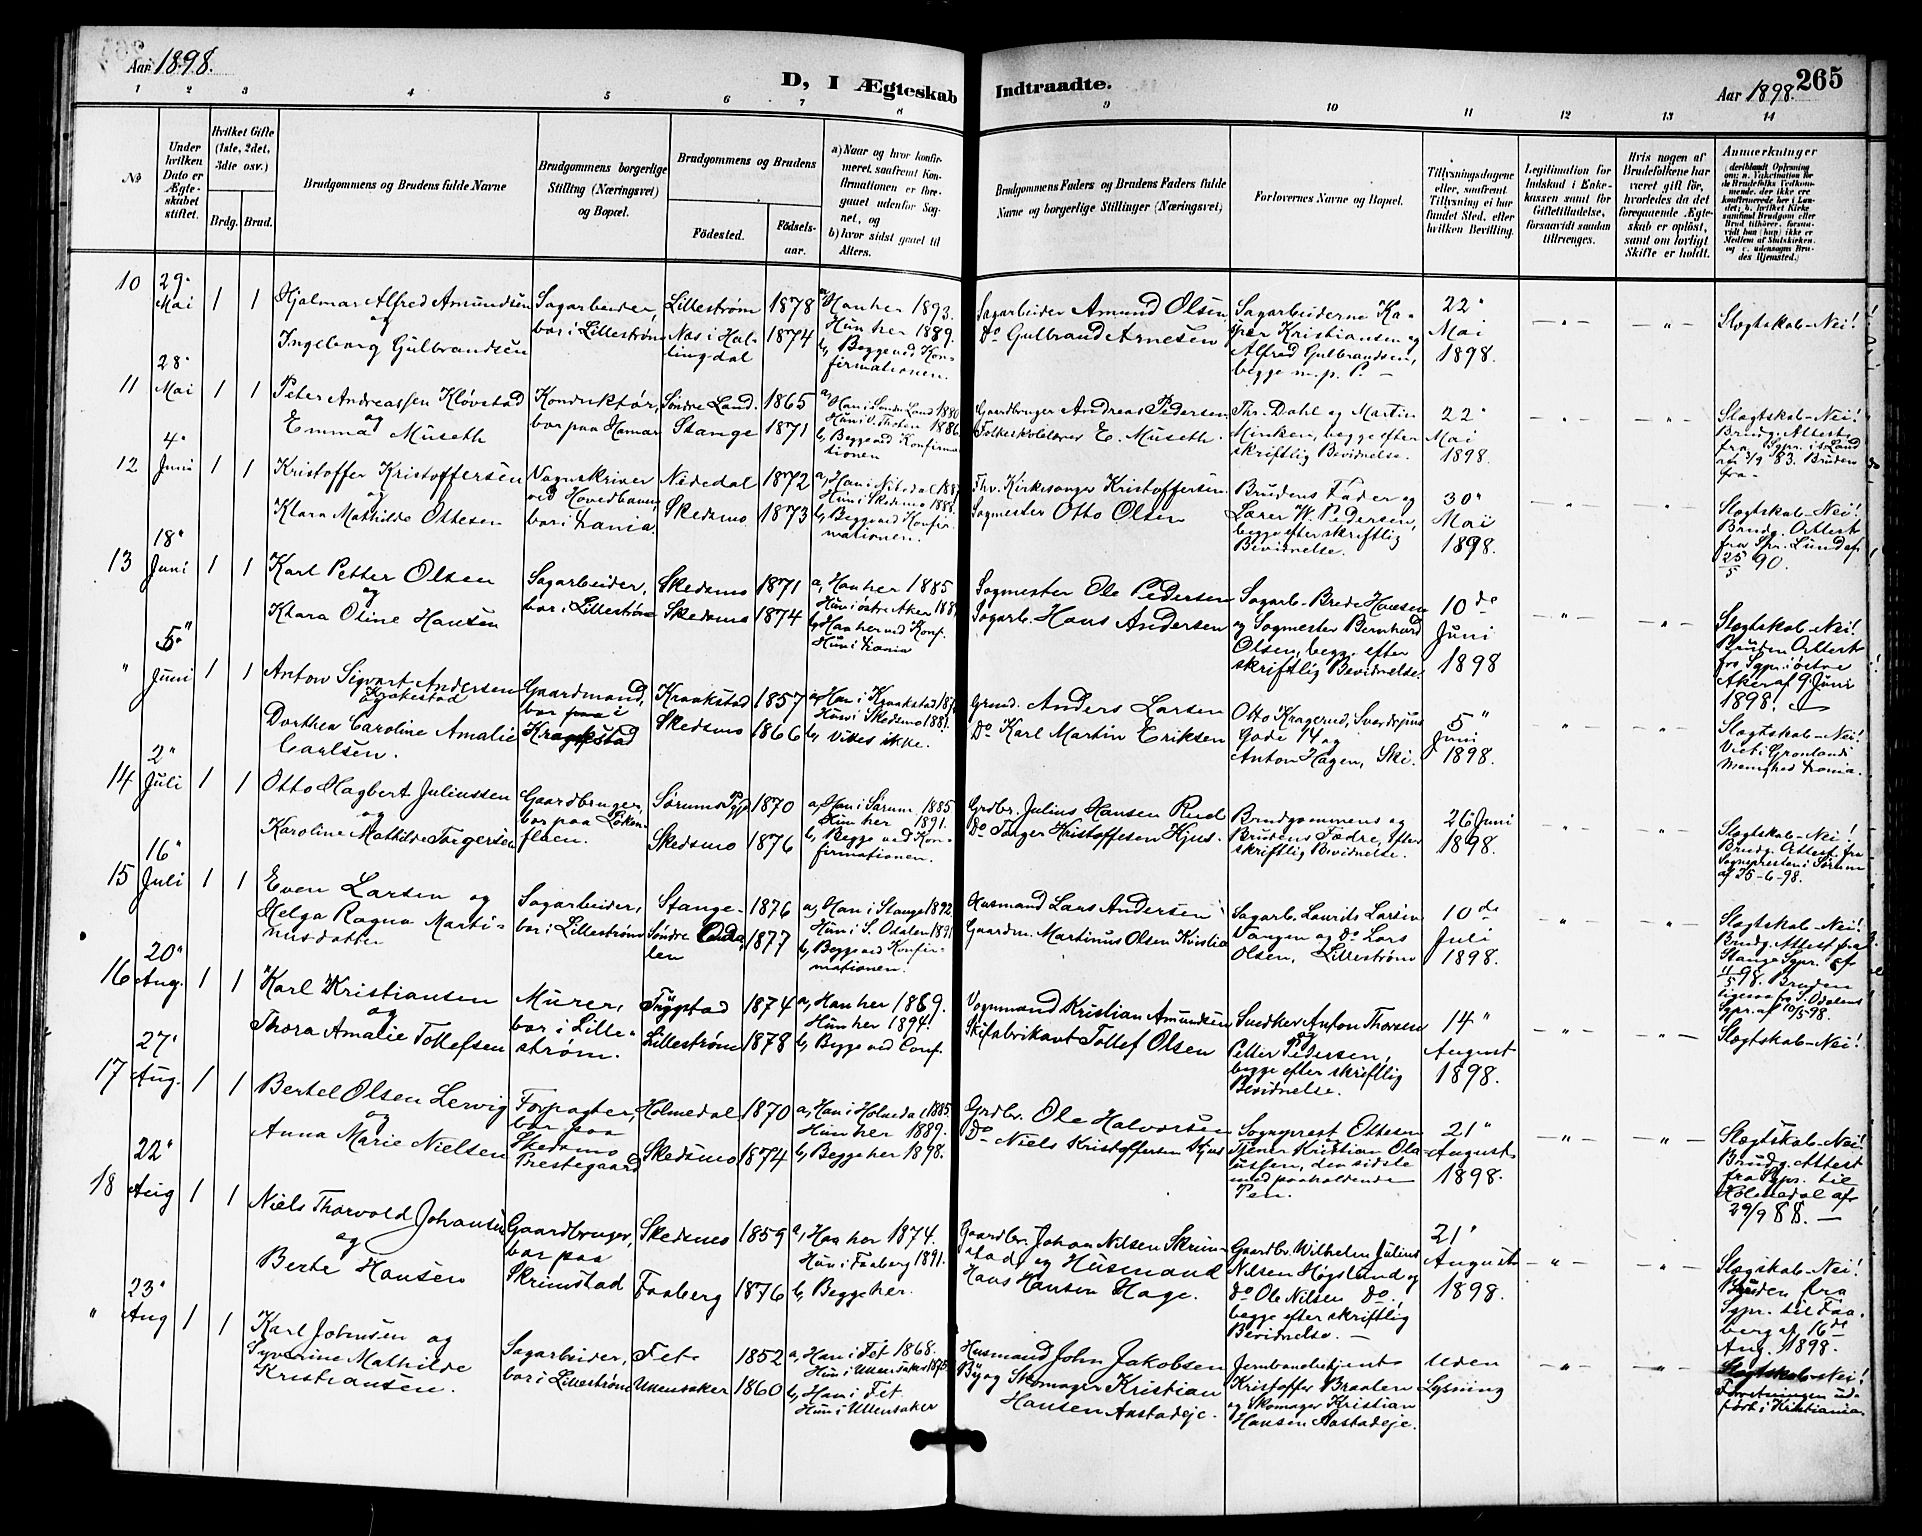 Aar 1898.
D, I Ægteskab
Indtraadte.
Aar 1898.
265
1 2 3 4 5 6 7 8 9 10 11 12 13 14
No
Under
hvilken
Dato er
Ægte-
skabet
stiftet.
Hvilket Gifte
(1ste, 2det,
3die osv.)
Brdg. Brud.
Brudgommens og Brudens fulde Navne
Brudgommens borgerlige
Stilling (Næringsvei)
og Bopæl.
Brudgommens og Brudens
Fødested.
Fødsels-
aar.
a) Naar og hvor konfir-
meret, saafremt Kon-
firmationen er fore-
gaaet udenfor Sog-
net, og
b) hvor sidst gaaet til
Alters.
Brudgommens Faders og Brudens Faders fulde
Navne og borgerlige Stillinger (Næringsvei)
Forlovernes Navne og Bopæl.
Tillysningsdagene
eller, saafremt
Tillysning ei har
fundet Sted, efter
hvilken Bevilling.
Legitimation for
Indskud i Enke-
kassen samt for
Giftetilladelse,
forsaavidt saadan
tiltrænges.
Hvis nogen af
Brudefolkene har
været gift før,
hvorledes da det
foregaaende Ægte-
skab er opløst,
samt om lovligt
Skifte er holdt.
Anmærkninger
(deriblandt Oplysning
om: a. Vaksination for
de Brudefolks Vedkom-
mende, der ikke ere
konfirmerede her i Lan-
det; b. hvilket Kirke-
samfund Brudgom eller
Brud tilhører, forsaa-
vidt han (hun) ikke er
Medlem af Statskirken,
og c. udensogns Bru-
des Hjemsted.)
10 29 Mai 1 1
Hjalmar Alfred Amundsen
og
Ingeborg Gulbrandsen
Sagarbeider,
bor i Lillestrøm
Lillestrøm 1878
Nas i Hal-
lingdal 1874
a, Han her 1893.
Hun her 1889.
b, Begge ved Kon-
firmationen.
Sagarbeider Amund Olsen
Do Gulbrand Arnesen
Sagarbeiderne Ka-
sper Kristiansen og
Alfred Gulbrandsen,
begge m. p. P. –
22"
Mai
1898.
– " – – " –
Slegtskab-Nei!
11 28 Mai 1 1
Peter Andreassen Kløvstad
og
Emma Museth
Konduktør,
bor paa Hamar
Søndre Land. 1865
Stange 1871
a, Han i Søndre Land 1880
Hun i V. Thoten 1886.
b, Begge ved Konfirma-
tionen
Gaardbruger Andreas Pedersen
Folkeskolelærer E. Museth.
Thr. Dahl og Martin
Minken, begge efter
skriftlig Bevidnelse.
22"
Mai
1898.
Slegtskab-Nei!
Brudg. Attest
fra Sgpr. i S. Land
Bruden
fra –
12 4 Juni 1 1
Kristoffer Kristoffersen
og
Klara Mathilde Ottesen
Vognskriver
ved Hovedbanen,
bor i Krania.
Nidedal 1872
Skedsmo 1873
a, Han i Nitedal
Hun i Skedsmo 1888.
b, Begge ved Konfir-
mationen.
Fhv. Kirkesanger Kristoffersen
Sagmester Otto Olsen
Brudens Fader og
Lærer W. Pedersen,
begge efter skriftlig
Bevidnelse.
30"
Mai
1898.
Slegtskab-Nei!
Brudg. Attest
fra Spr. Lund af
25/5 90.
13 18" Juni 1 1
Karl Petter Olsen
og
Klara Oline Hansen
Sagarbeider,
bor i Lillestrøm
Skedsmo 1871
Skedsmo 1874
a, Han her 1885
Hun i østre Aker
b, Han her ved Konf.
Hun i Krania
Sagmester Ole Pedersen
Sagarb. Hans Andersen
Sagarb. Brede Hansen
og Sagmester Bernhard
Olsen, begge efter
skriftlig Bevidnelse.
10 de
Juni
1898
Slegtskab-Nei!
Bruden Attest
fra Sgpr. i østre
Aker af 9 Juni
1898.
" 5" Juni 1 1
Anton Sigvart Andersen
Krakestad
Dorthea Caroline Amalie
Carlsen.
Gaardmand,
bor paa i
Kragestad
Kraakstad 1857
Skedsmo 1866
a, Han i Kraakstad
Hun i Skedsmo 1881.
b, Vides ikke.
Grmd. Anders Larsen
Do Karl Martin Eriksen
Otto Kragerud,
Gade 14 og
Anton Hagen, Ski.
5"
Juni
1898.
Slegtskab-Nei!
Viet i Grønlands
Menighed Krania.
14 2" Juli 1 1
Otto Hagbert Juliussen
og
Karoline Mathilde Torgersen
Gaardbruger,
bor paa Løken-
flaen.
Sørums Pgj. 1870
Skedsmo 1876
a, Han i Sørum 1885
Hun her 1891.
b, Begge ved Kon-
firmationen.
Grdbr. Julius Hansen Rud
Do Torger Kristoffersen Hjus.
Brudgommens og
Brudens Fædre, efter
skriftlig Bevidnelse.
26 Juni
1898.
Slegtskab-Nei!
Brudg. Attest fra
Sognepresten i Sørum
af 25-6-98.
15 16" Juli 1 1
Even Larsen og
Helga Ragna Marti-
nusdatter
Sagarbeider,
bor i Lillestrøm
Stange 1876
Søndre Oda-
len 1877
a, Han i Stange 1892.
Hun i S. Odalen 1891
b, Begge ved Konfir-
mationen.
Husmand Lars Andersen
Gaardm. Martinus Olsen Kvislia
Sagarb. Laurits Larsen
Vangen og Do Lars
Olsen, Lillestrøm
10 de
Juli
1898.
Slegtskab-Nei!
Brudg. Attest fra
Stange Sgpr. af
98. Bruden
ligesaa fra S. Odalens
Sgpr. af 10/5-98.
16 20" Aug. 1 1
Karl Kristiansen
og
Thora Amalie Tollefsen
Murer,
bor i Lille-
strøm.
Trygstad 1874
Lillestrøm 1878
a, Han her 1889.
Hun her 1894.
b, Begge ved Conf.
Vognmand Kristian Amundsen
Skifabrikant Tollef Olsen
Snedker Anton Thoresen
og
Petter Pedersen,
begge efter skriftlig
Bevidnelse.
14"
August
1898.
– " – – " –
Slegtskab-Nei!
17 27 Aug. 1 1
Bertel Olsen Lervig
og
Anna Marie Nielsen
Forpagter,
bor paa
Skedsmo
Prestegaard
Holmedal 1870
Skedsmo 1874
a, Han i Holmedal 1885.
Hun her 1889.
b, Begge her 1898.
Grdbr. Ole Halvorsen
Do Niels Kristoffersen Hjus
Sogneprest Ottesen
Tjener Kristian Ola-
ussen, den sidste
med paaholdende
Pen.
21"
August
1898.
– " – – " –
Slegtskab-Nei!
Brudg. Attest
fra Sgpr. til
Holmedal af
29/9 88. –
18 22" Aug 1 1
Niels Thorvald Johansen
og
Berte Hansen
Gaardbruger,
bor paa
Skrimstad
Skedsmo 1859
Faaberg 1876
a, Han her 1874.
Hun i Faaberg 1891.
b, Begge her.
Gaardbr. Johan Nilsen Skrim-
stad, og Husmand
Hans Hansen Hage.
Gaardbr. Wilhelm Julius
Nilsen Høgslund og
Do Ole Nilsen Do,
begge efter skriftlig
Bevidnelse. –
21"
August
1898.
– " – – " –
Slegskab-Nei!
Bruden fra
Sgpr. til Faa-
berg af 16 de
Aug. 1898.
" 23" Aug 1 1
Karl Johnsen og
Syverine Mathilde
Kristiansen.
Sagarbeider,
bor i Lillestrøm
Fet 1852
Ullensaker 1860
a, Han i Fet 1868.
Hun i Ullensaker 1875
b, Han i Fet.
Hun i Ullensaker
Husmand John Jakobsen
Skomager Kristian
Hansen Aastadeje.
Jernbanebetjent
Kristoffer Braaten
og Skomager Kristian
Hansen Aastadeje.
Uden
Lysning
– " – – " –
Slegtskab-Nei!
Forretningen ud-
ført i Kristiania